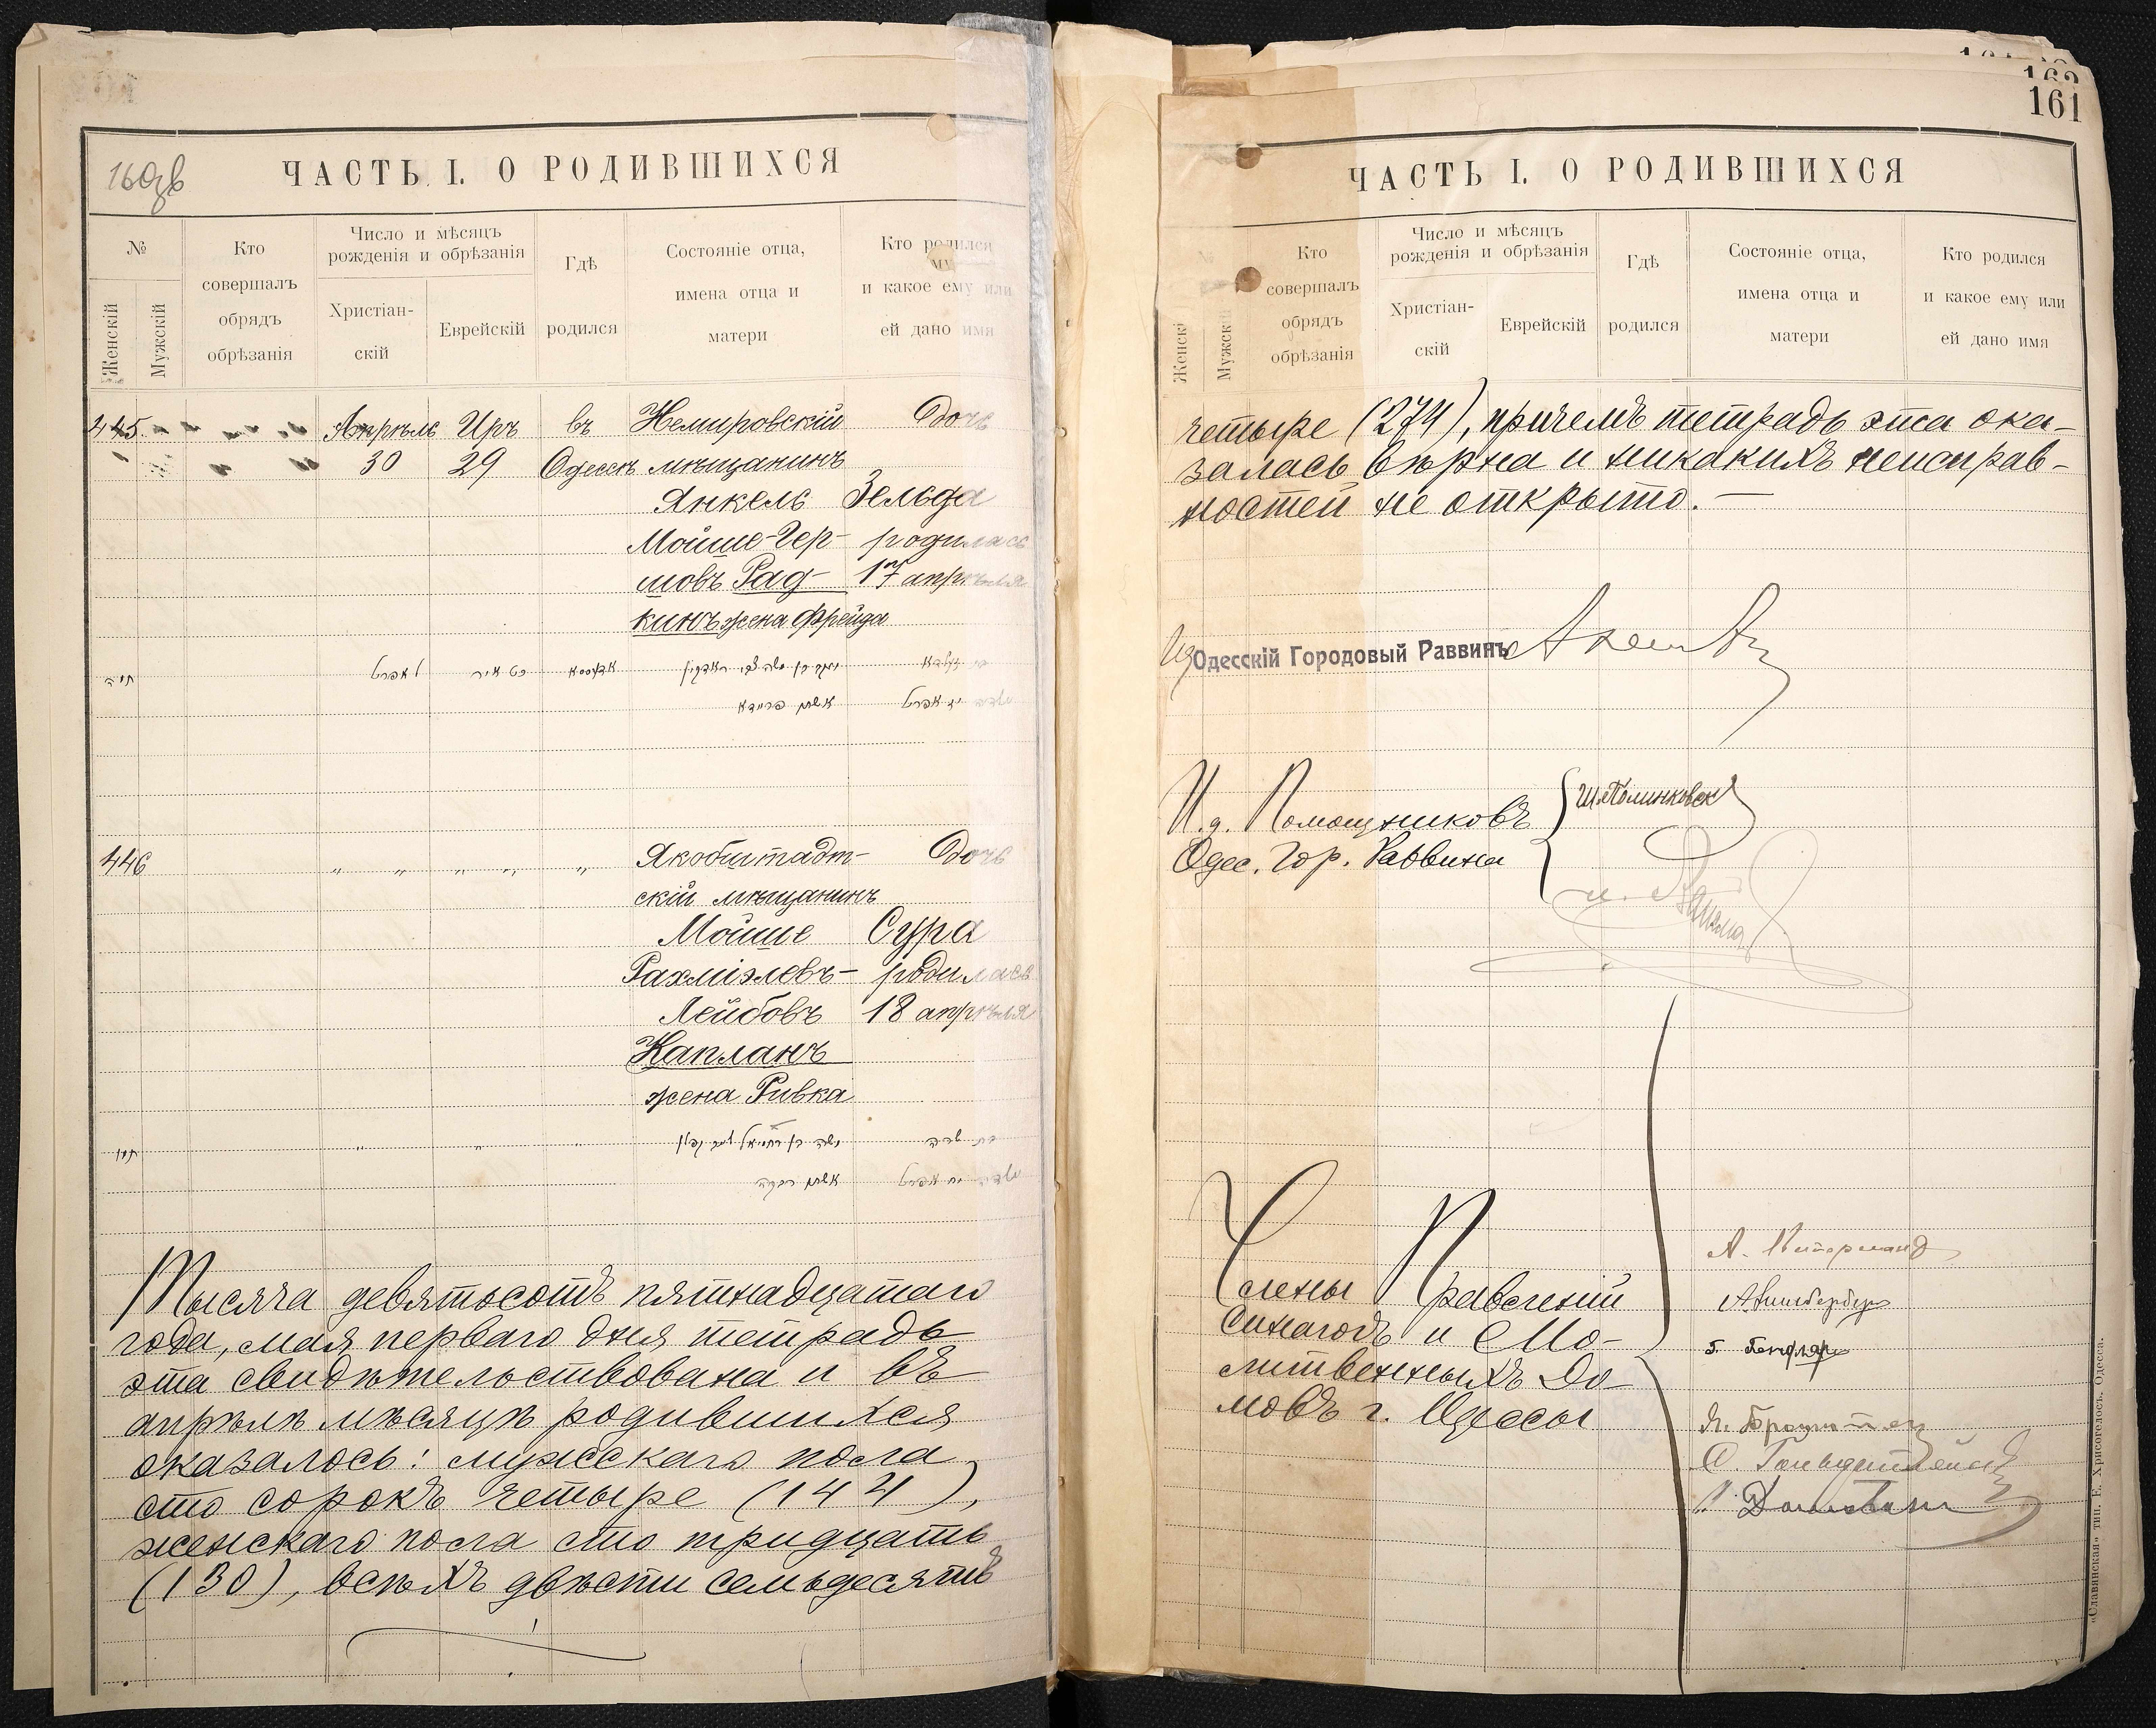 160об
ЧАСТЬ I. О РОДИВШИХСЯ
№
Женскій
Мужскій
Кто
совершалъ
обрядъ
обрѣзанія
Число и мѣсяцъ
рожденія и обрѣзанія
Христіан-
скій
Еврейскій
Гдѣ
родился
Состояніе отца,
имена отца и
матери
Кто родился
и какое ему или
ей дано имя
445. Апрѣль Иръ въ Немировскій Дочь
30 29 Одессѣ мѣщанинъ
Янкель Зельда
Мойше-Гер- родилась
шовъ Рад- 17 апрѣля
кинъ жена Фрейда
ל אפריל כט אייר אדעססא
אשתו פריידא יז אפריל
446 " " " " " Якобштадт- Дочь
скій мѣщанинъ
Мойше Сура
Рахміэлевъ- родилась
Лейбовъ 18 апрѣля
Капланъ
жена Ривка
" " " בת שרה
אשתו רבקה יח אפריל
Тысяча девятьсотъ пятнадцатаго
года, мая перваго дня тетрадь
эта свидѣтельствована и въ
апрѣлѣ мѣсяцѣ родившихся
оказалось: мужскаго пола
сто сорокъ четыре (144),
женскаго пола сто тридцать
(130), всѣхъ двѣсти семьдесятъ
162
161
ЧАСТЬ I. О РОДИВШИХСЯ
Женскі
Мужскій
Кто
совершалъ
обрядъ
обрѣзанія
Число и мѣсяцъ
рожденія и обрѣзанія
Христіан-
скій
Еврейскій
Гдѣ
родился
Состояніе отца,
имена отца и
матери
Кто родился
и какое ему или
ей дано имя
четыре (274), причемъ тетрадь эта ока-
залась вѣрна и никакихъ неисправ-
ностей не открыто. —
Одесскій Городовый Раввинъ
И.д. Помощниковъ
Одес. Гор. Раввина
Ш. Полинковск
Члены Правленій
Синагогъ и Мо-
литвенныхъ До-
мовъ г. Одессы
«Славянская» тип. Е. Хрисогелосъ. Одесса.